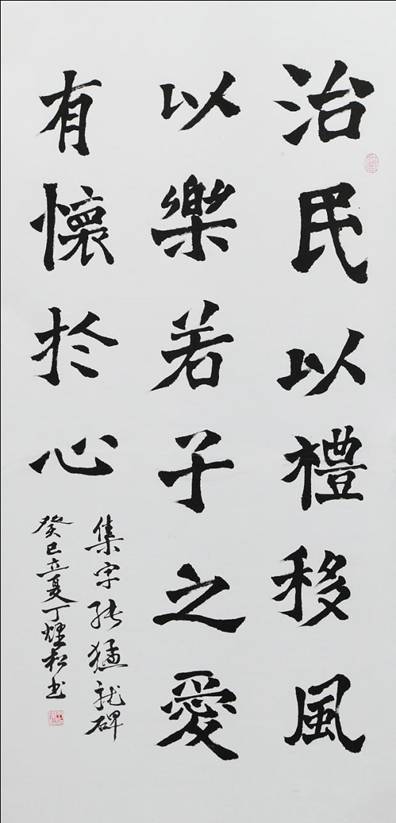 治民以禮移風
以樂若子之愛
有懷於心
集字張猛龍碑
癸巳立夏丁煃松书